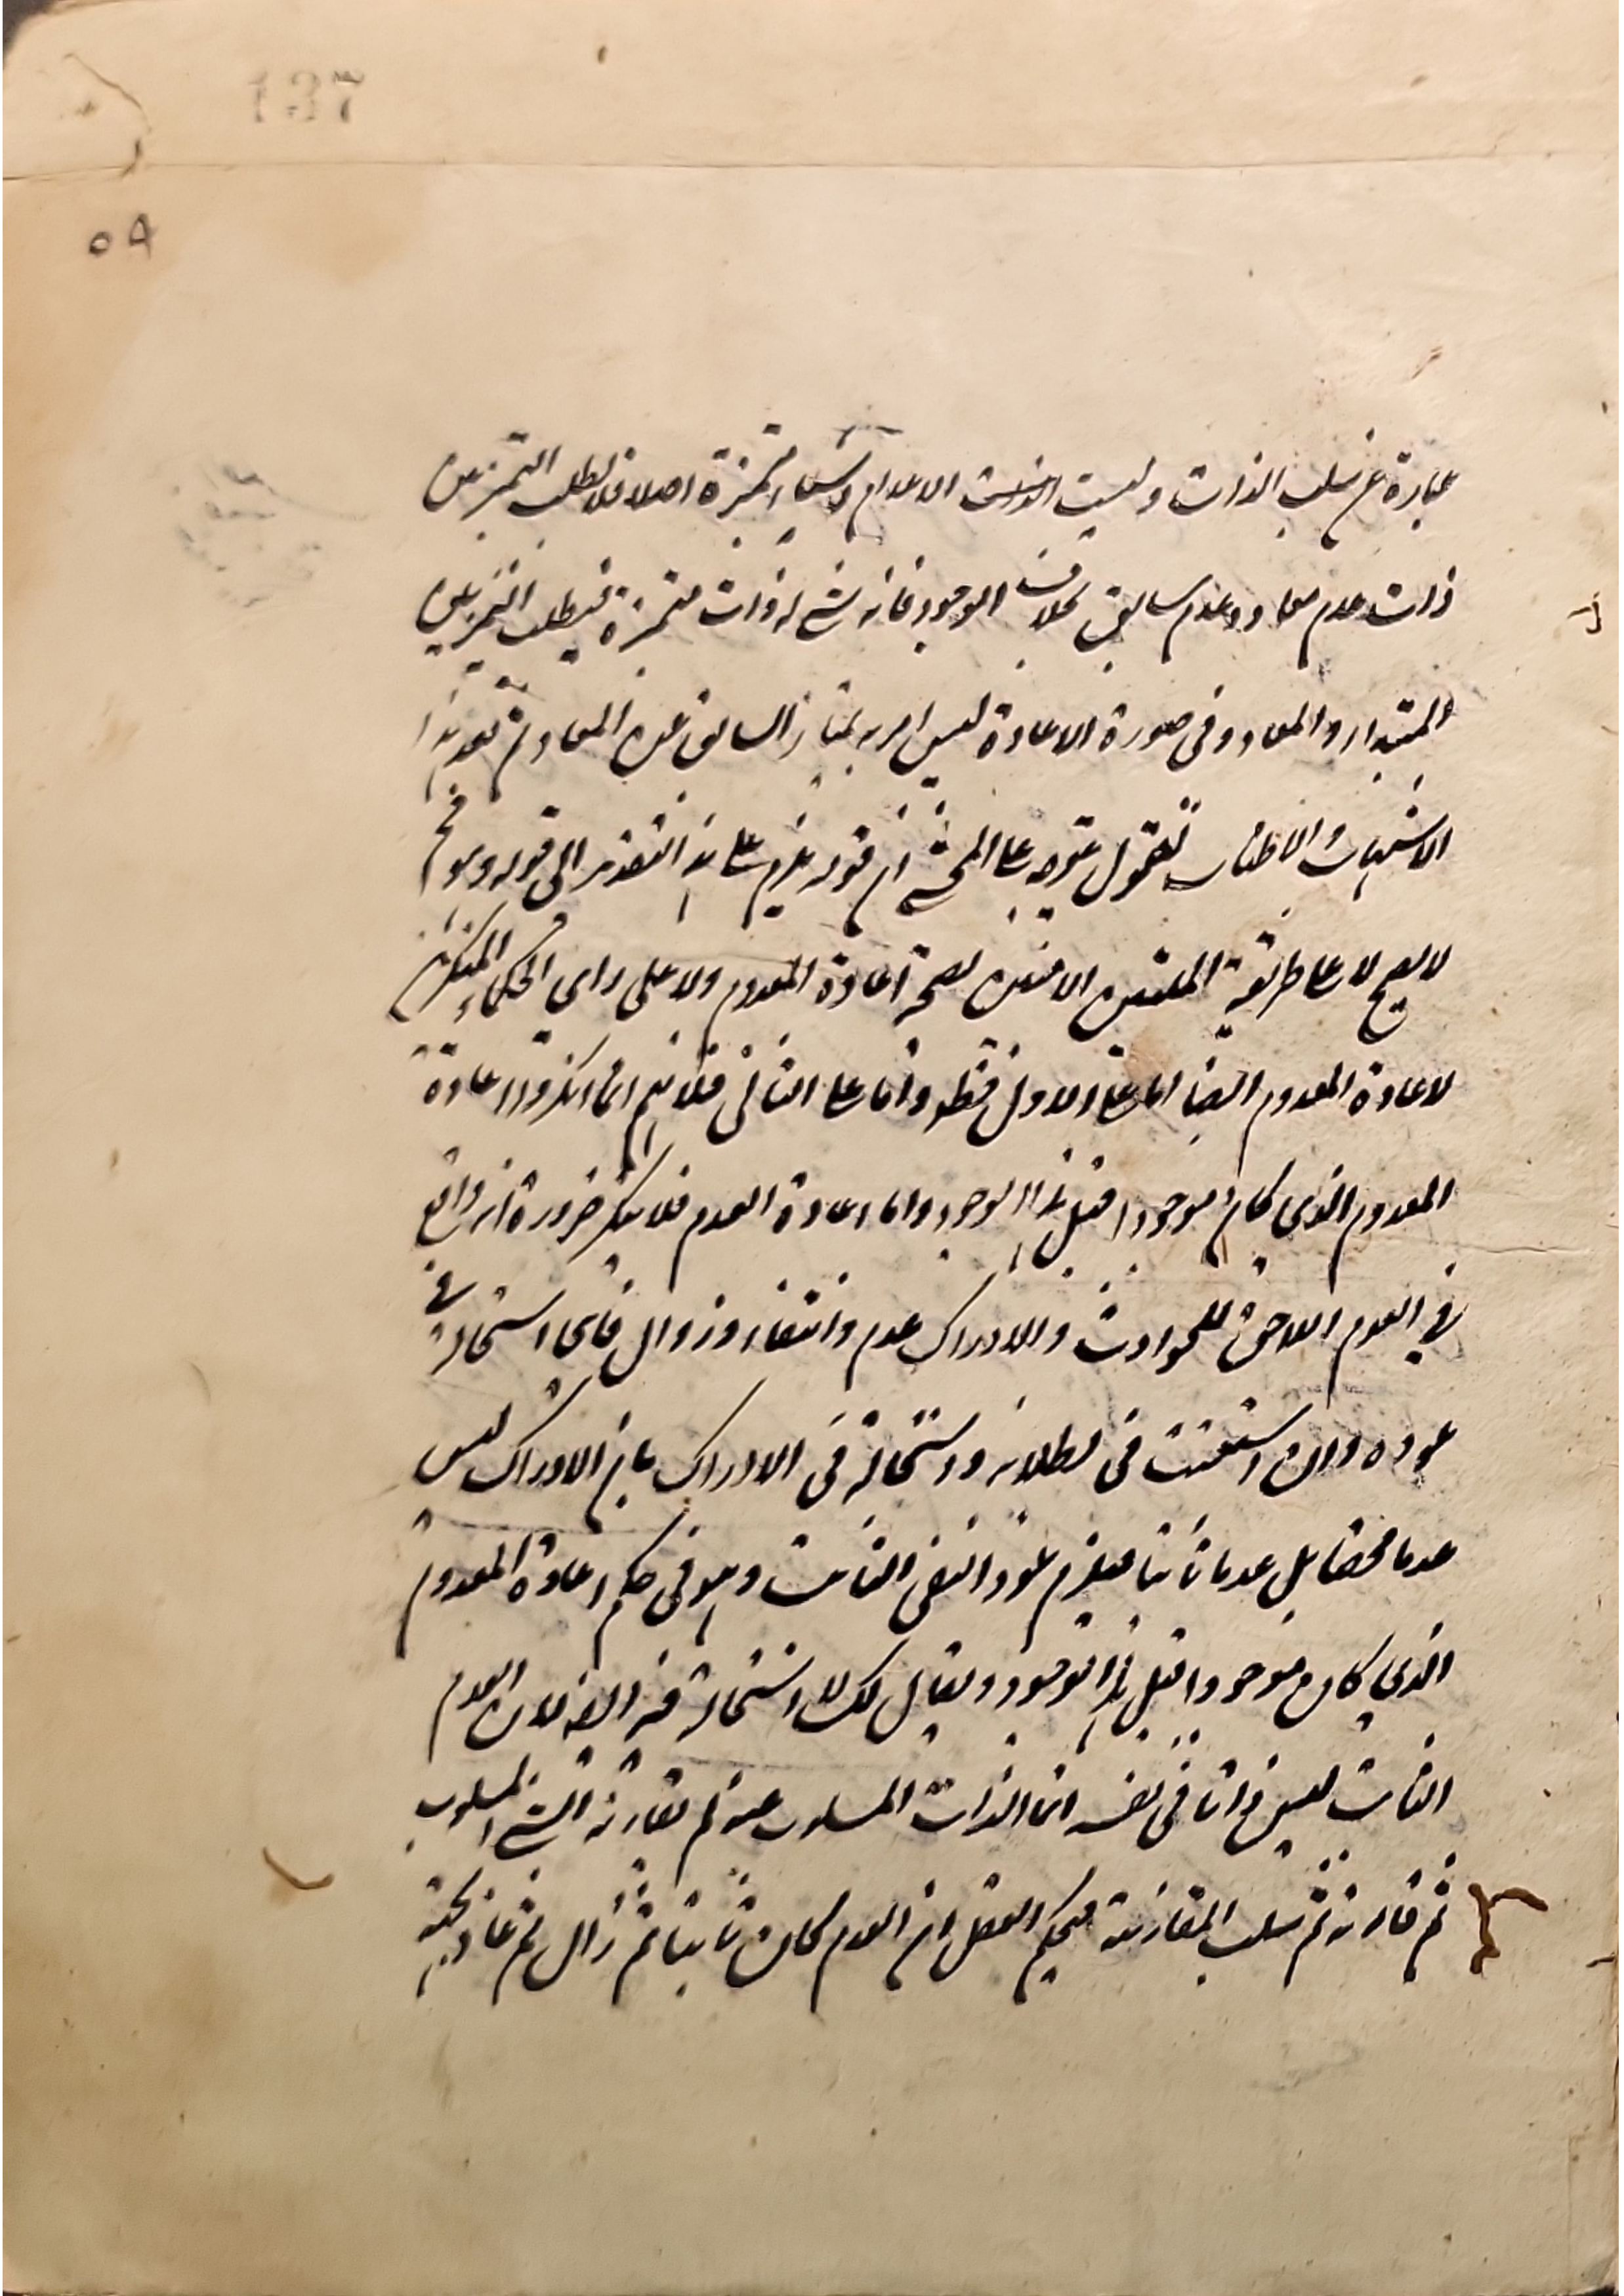 137
٥٩
عبارة عن سلب الذات وليست الاعدام اشياء متميزة اصلا فلا يطلب التميز بين
ذات عدم معاد وعدم سابق بخلاف الموجود فانه شئ له ذات متميزة فيطلب التميز بين
المبتدأ والمعاد وفى صورة الاعادة ليس امر به يمتاز السابق عن المعاد ثم بعد هذا
نقول يتوجه على المحشى ان قوله يلزم على هذا التقدير الى قوله وهو مح
لا يصح لا على طريقة المليين بصحة اعادة المعدوم ولا على راى الحكماء المنكرين
لاعادة المعدوم ايضا اما على الاول فظ واما على الثانى فلانهم انما انكروا اعادة
المعدوم الذى كان موجودا قبل هذا الوجود واما اعادة العدم فلا ينكر ضرورة انه واقع
فى العدم اللاحق للحوادث والادراك عدم وانتفاء وزوال فاى استحالة فى
عوده وان استعنت فى بطلانه واستحالته فى الادراك بان الادراك ليس
عدما محضا بل عدما ثابتا فيلزم عود النفى الثابت وهو فى حكم اعادة المعدوم
الذى كان موجودا قبل هذا الوجود ويقال لك لا استحالة فيه ايضا لان العدم
الثابت ليس ذاتا فى نفسه انما الذات المسلوب عنه لم تقارنه الشئ المسلوب
ثم قارنه ثم سلب المقارنة فيحكم العقل ان العدم كان ثابتا ثم زال ثم عاد